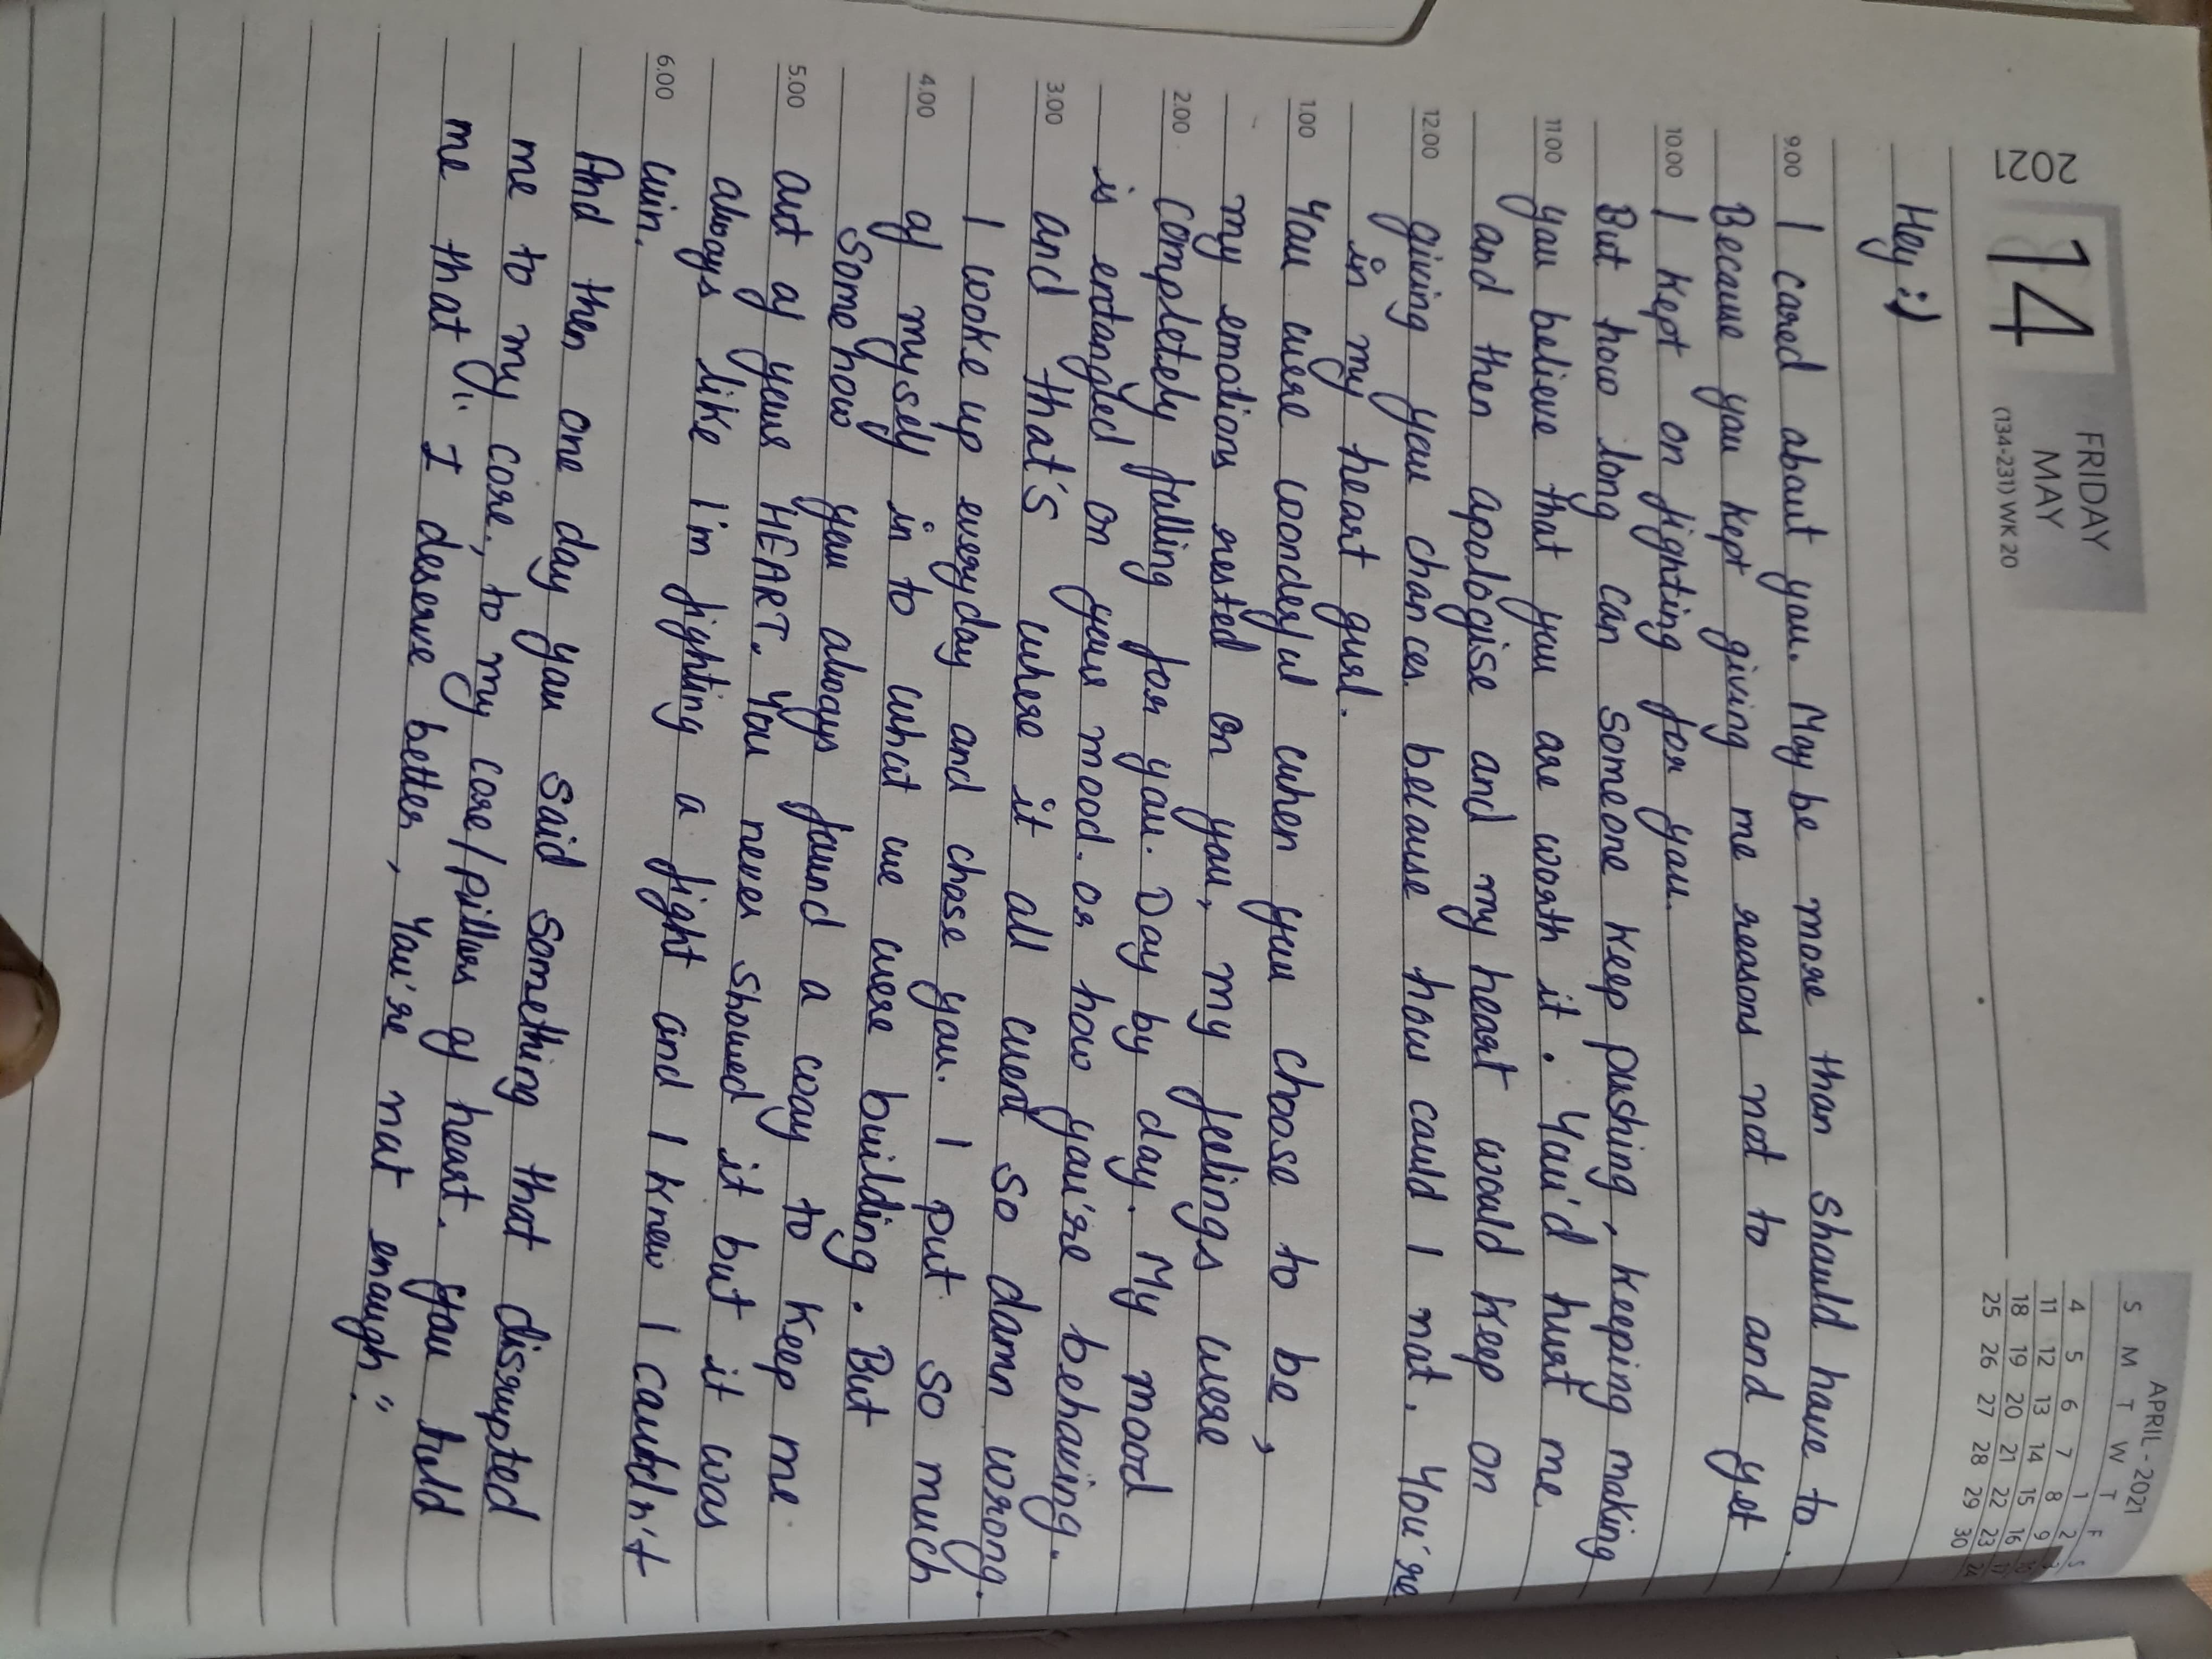 2021
14
FRIDAY
MAY
(134-231) WK 20
APRIL - 2021
S M T W T F S
1 2 3
4 5 6 7 8 9
11 12 13 14 15 16 17
18 19 20 21 22 23 24
25 26 27 28 29 30
Hey :)
9.00 I cared about you. May be more than should have to.
Because you kept giving me reasons not to and yet
10.00 I kept on fighting for you.
But how long can someone keep pushing, keeping making
11.00 you believe that you are worth it. You'd hurt me
and then apologise and my heart would keep on
12.00 giving you chances because how could I not. You're
in my heart gurl.
1.00 You were wonderful when you choose to be,
my emotions rested on you, my feelings were
2.00 completely falling for you. Day by day. My mood
is entangled on your mood. or how you're behaving.
3.00 and that's where it all went so damn wrong.
I woke up everyday and chose you. I put so much
4.00 of myself in to what we were building. But
Somehow you always found a way to keep me
5.00 out of your HEART. You never showed it but it was
always like I'm fighting a fight and I knew I couldn't
6.00 win.
And then one day you said something that disrupted
me to my core, to my core/pillars of heart. You told
me that " I deserve better, You're not enough."